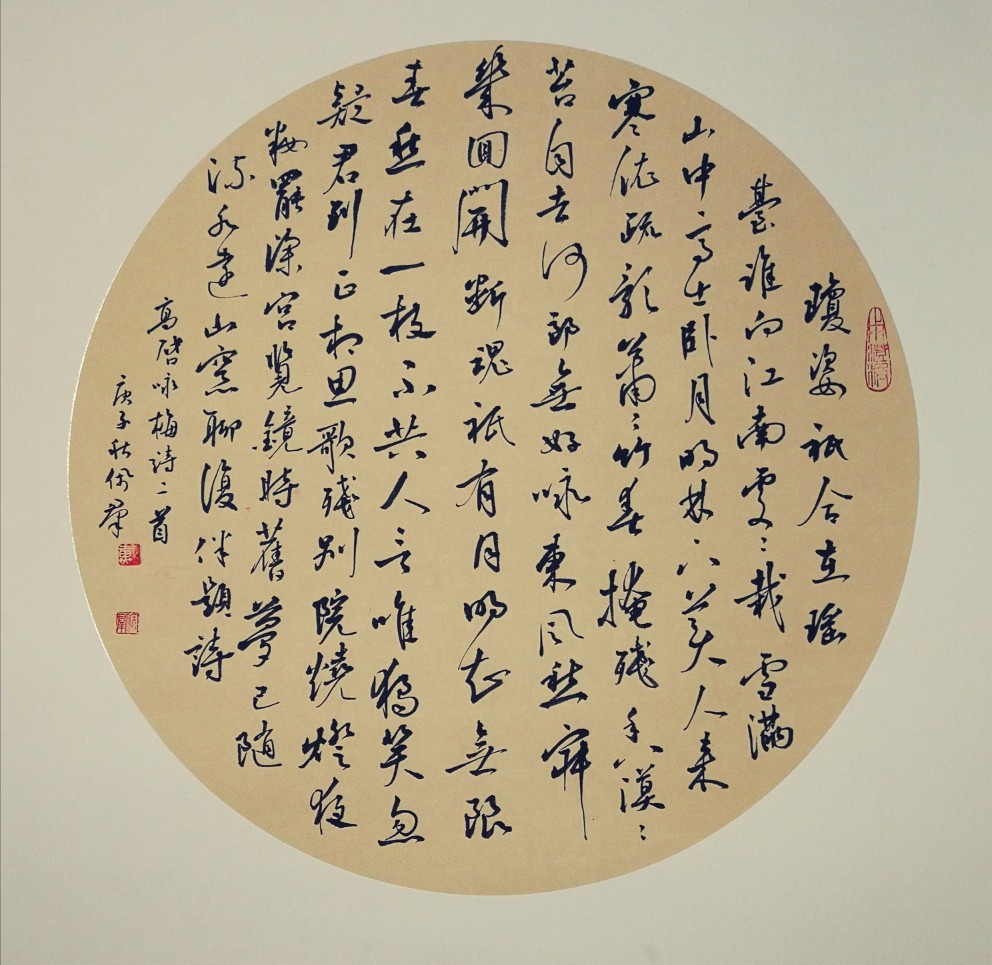 瓊姿祇合在瑤
臺誰向江南處〻栽雪滿
山中高士臥月明林下美人來
寒依疏影蕭〻竹春掩殘香漠〻
苔自去何郎無好咏東風愁寂
幾回開斷魂祇有月明知無限
春愁在一枝不共人言唯獨笑忽
疑君到正相思歌殘別院燒燈夜
妝罷深宮覽鏡時舊夢已隨
流水遠山窓聊復伴題詩
高啓咏梅詩二首
庚子秋佩群